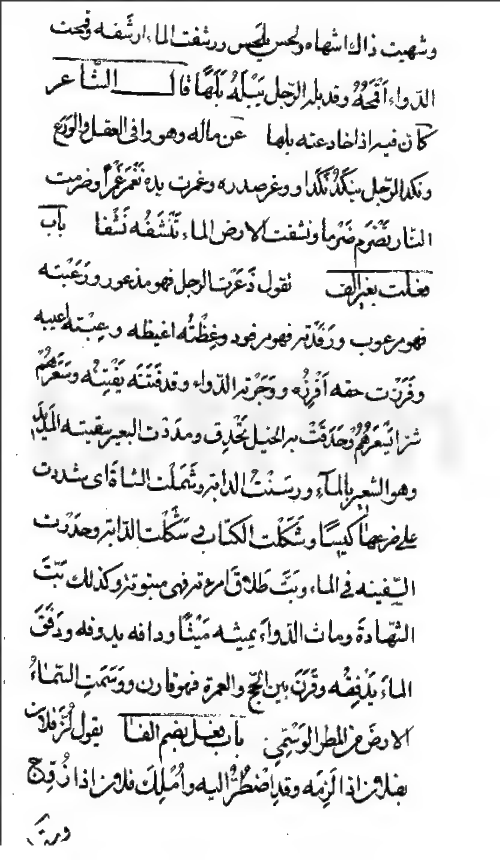 وشهيت ذاك اشهاه ولحس يلحس ورشفت الماء ارشفه وقمحت
الدواء اقمحه وقد بله الرجل يبله بلها قال الشاعر
كان فيه اذا خادعته بلها عن ماله وهو وافى العقل والورع
ونكد الرجل ينكد نكدا ووغر صدره وغمرت يده تغمر غمرا وضرمت
النار تضرم ضرما ونشفت الارض الماء تنشفه نشفا باب
فعلت بغير الف تقول ذعرت الرجل فهو مذعور ورعبته
فهو مرعوب ورفدته فهو مرفود وغظته اغيظه وعبته اعيبه
وفرزت حقه افرزه ووجرته الدواء وقد فتنه يفتنه وسعرهم
شرا يسعرهم وحدقت به الخيل تحدق ومددت البعير سقيته المديد
وهو الشعير بالماء ورسنت الدابة وشملت الشاة اى شددت
على ضرعها كيسا وشكلت الكتاب شكلت الدابة وحدرت
السفينة فى الماء وبت طلاق امرءته فهى مبتوتة وكذلك بت
الشهادة وماث الدواء يميثه ميثا ودافه يدوفه ودفق
الماء يدفقه وقرن بين الحج والعمرة فهو قارن ووسمت السماء
الارض من المطر الوسمى باب فعل بضم الفا يقول لز فلان
بفلان اذا الزمه وقد اضطر اليه واملك فلان اذا زوج